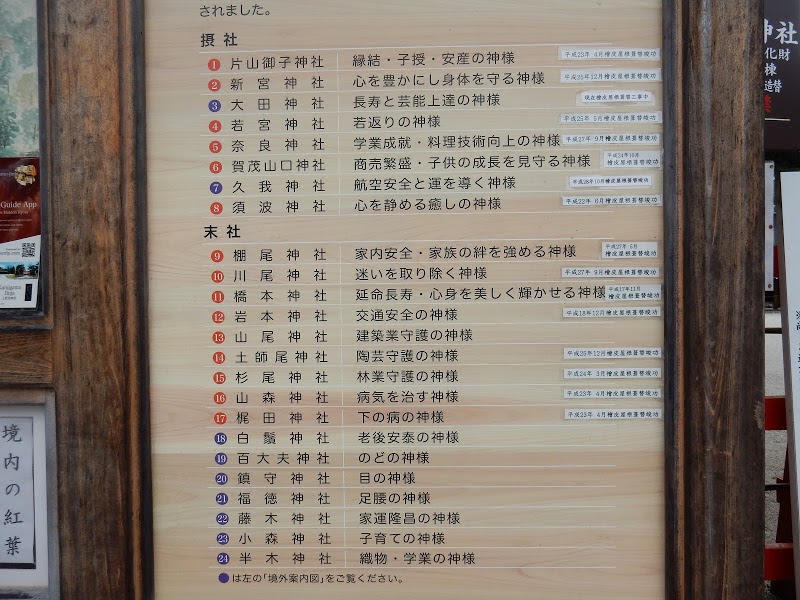 されました。
摂社
1 片山御子神社 縁結・子授・安産の神様 平成23年 4月檜皮屋根葺替竣功
2 新宮神社 心を豊かにし身体を守る神様 平成25年12月檜皮屋根葺替竣功
3 大田神社 長寿と芸能上達の神様 現在檜皮屋根葺替工事中
4 若宮神社 若返りの神様 平成25年 5月檜皮屋根葺替竣功
5 奈良神社 学業成就・料理技術向上の神様 平成27年 9月檜皮屋根葺替竣功
6 賀茂山口神社 商売繁盛・子供の成長を見守る神様 平成24年10月 檜皮屋根葺替竣功
7 久我神社 航空安全と運を導く神様 平成28年10月檜皮屋根葺替竣功
8 須波神社 心を静める癒しの神様 平成22年 6月檜皮屋根葺替竣功
末社
9 棚尾神社 家内安全・家族の絆を強める神様 平成27年 5月 檜皮屋根葺替竣功
10 川尾神社 迷いを取り除く神様 平成27年 9月檜皮屋根葺替竣功
11 橋本神社 延命長寿・心身を美しく輝かせる神様 平成17年11月 檜皮屋根葺替竣功
12 岩本神社 交通安全の神様 平成18年12月檜皮屋根葺替竣功
13 山尾神社 建築業守護の神様
14 土師尾神社 陶芸守護の神様 平成25年12月檜皮屋根葺替竣功
15 杉尾神社 林業守護の神様 平成24年 3月檜皮屋根葺替竣功
16 山森神社 病気を治す神様 平成23年 4月檜皮屋根葺替竣功
17 梶田神社 下の病の神様 平成23年 4月檜皮屋根葺替竣功
18 白鬚神社 老後安泰の神様
19 百大夫神社 のどの神様
20 鎮守神社 目の神様
21 福徳神社 足腰の神様
22 藤木神社 家運隆昌の神様
23 小森神社 子育ての神様
24 半木神社 織物・学業の神様
●は左の「境外案内図」をご覧ください。
境内の紅葉
Guide App
神社
化財
棟
造替